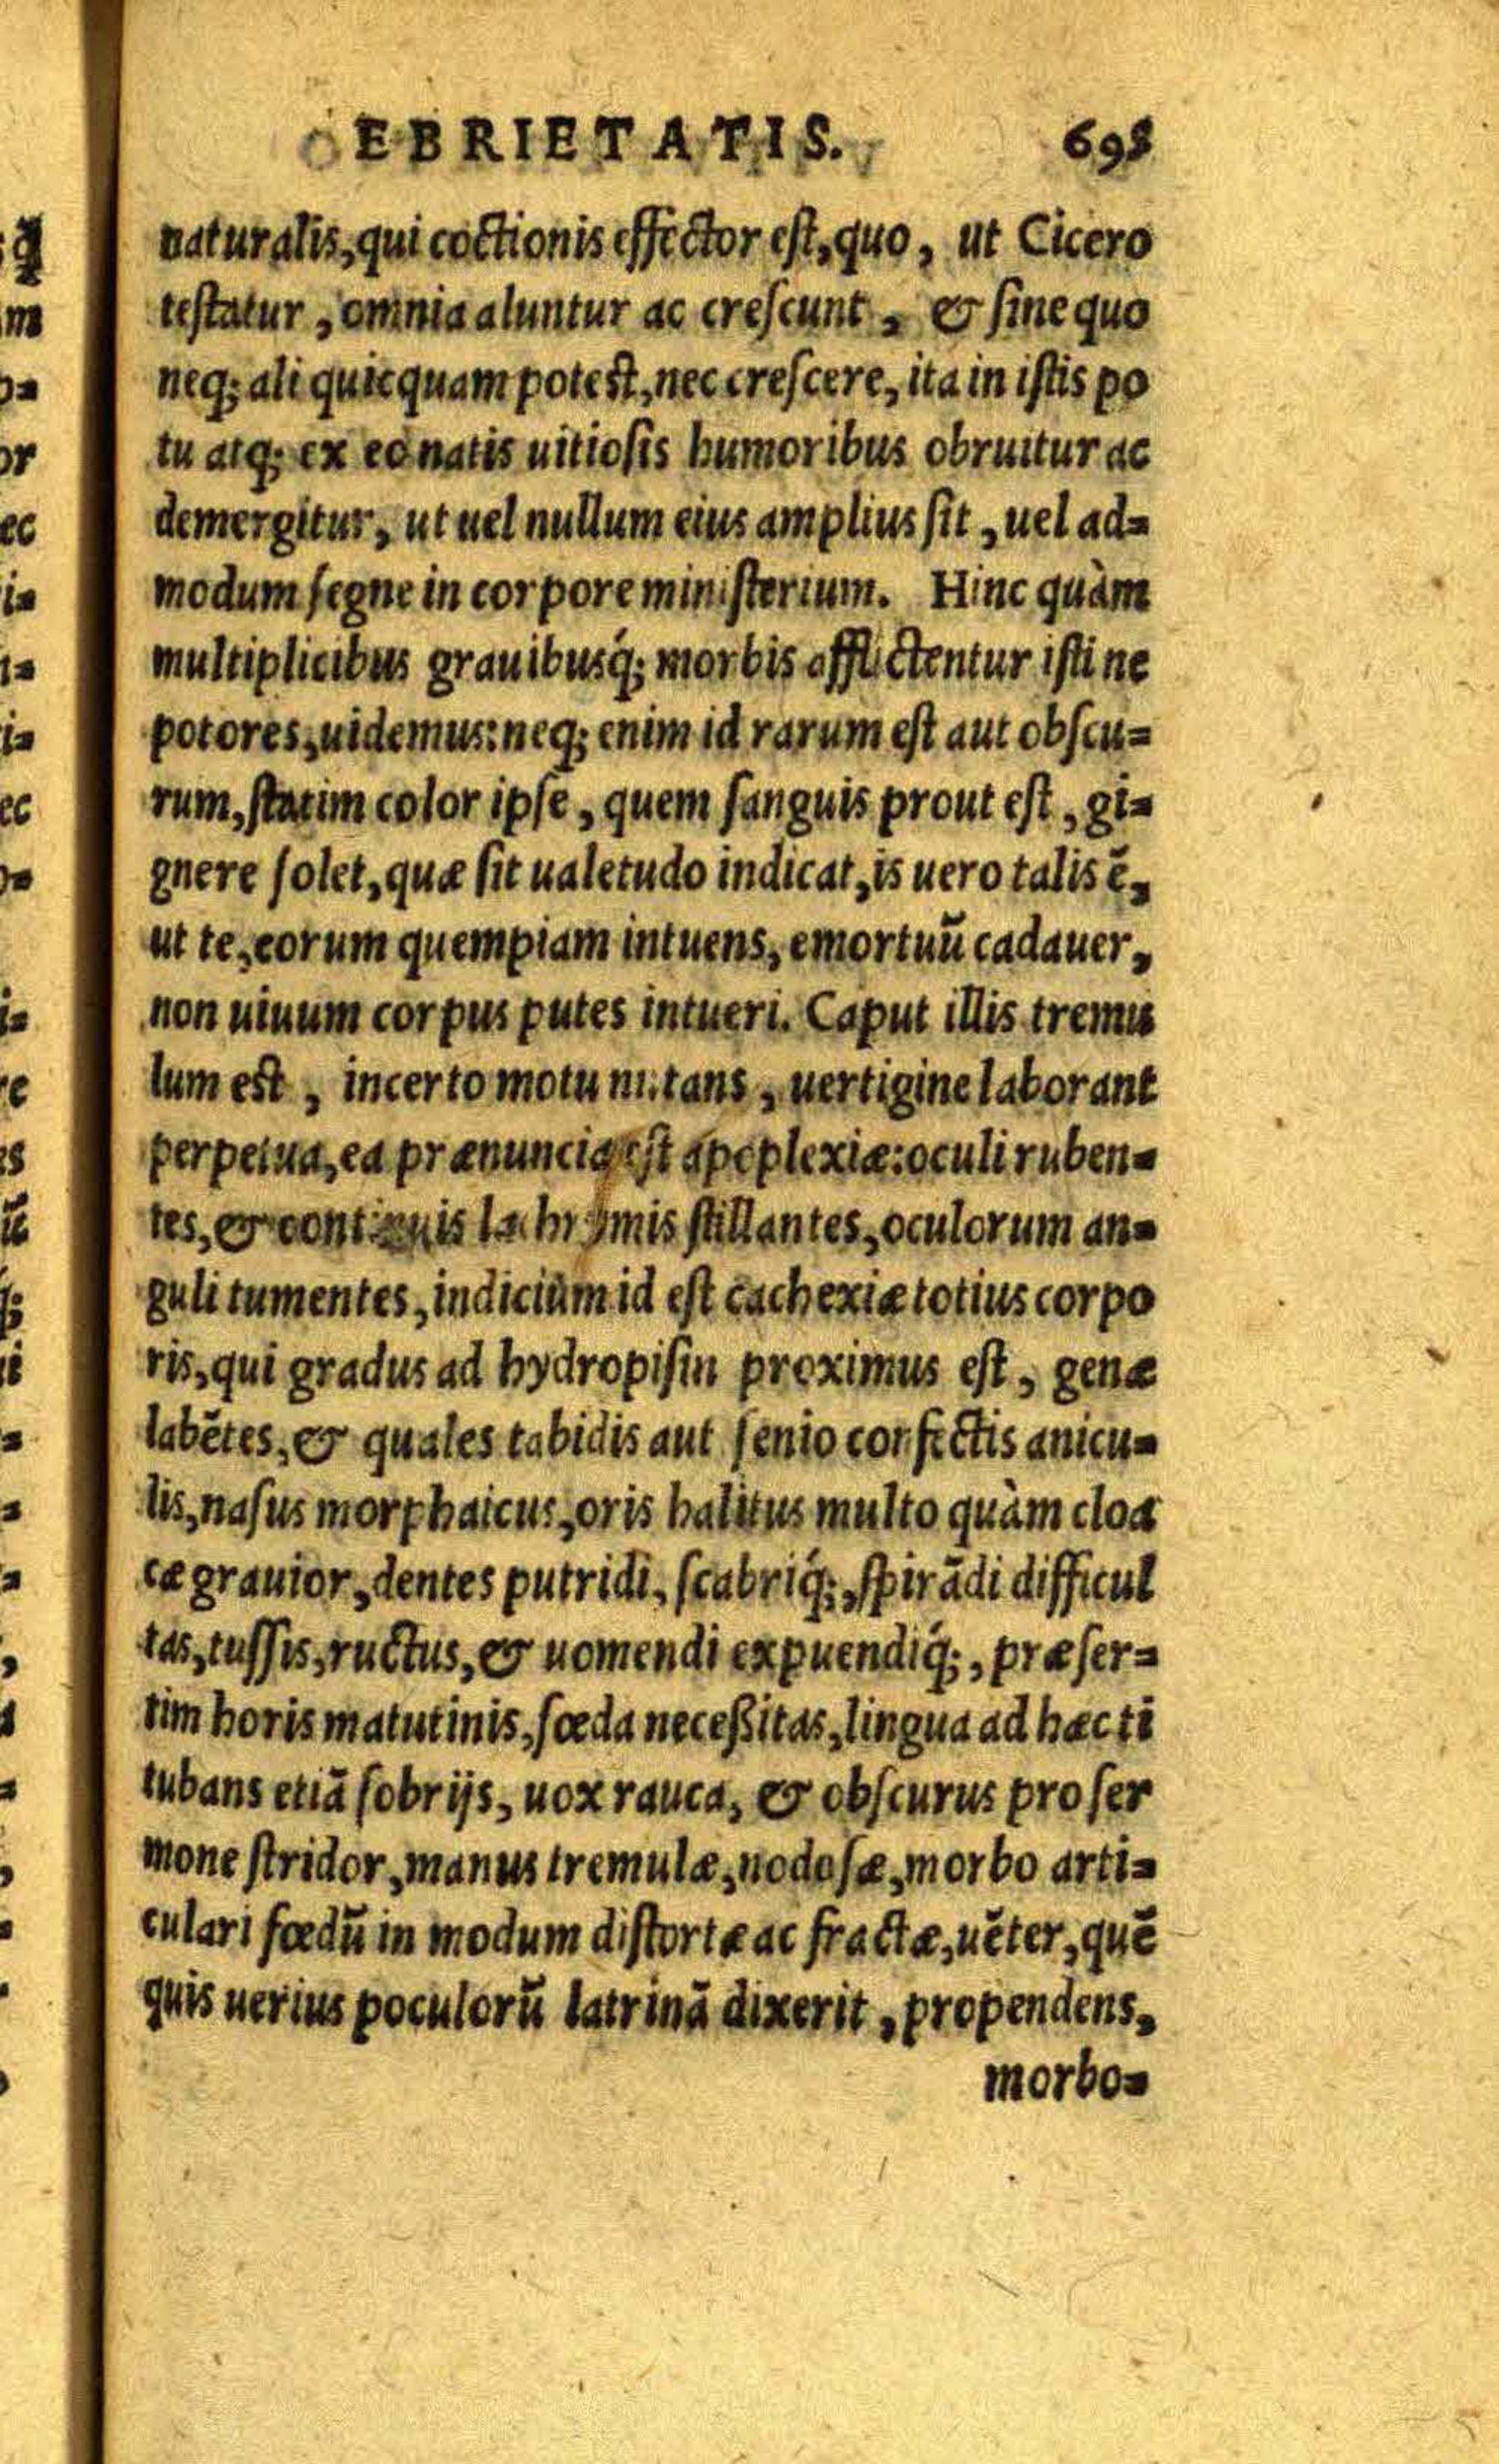 EBRIETATIS. 695
naturalis, qui coctionis effector est, quo, ut Cicero
testatur, omnia aluntur ac crescunt, & sine quo
neq; ali quicquam potest, nec crescere, ita in istis po
tu atq; ex eo natis uitiosis humoribus obruitur ac
demergitur, ut uel nullum eius amplius sit, uel ad=
modum segne in corpore ministerium. Hinc quàm
multiplicibus grauibusq́; morbis afflictentur isti ne
potores, uidemus: neq; enim id rarum est aut obscu=
rum, statim color ipse, quem sanguis prout est, gi=
gnere solet, quæ sit ualetudo indicat, is uero talis ē,
ut te, eorum quempiam intuens, emortuū cadauer,
non uiuum corpus putes intueri. Caput illis tremu
lum est, incerto motu nutans, uertigine laborant
perpetua, ea prænuncia est apoplexiæ: oculi ruben=
tes, & continuis lachrymis stillantes, oculorum an=
guli tumentes, indicium id est cachexiæ totius corpo
ris, qui gradus ad hydropisin proximus est, genæ
labētes, & quales tabidis aut senio confectis anicu=
lis, nasus morphaicus, oris halitus multo quàm cloa
cæ grauior, dentes putridi, scabriq́;, spirādi difficul
tas, tussis, ructus, & uomendi expuendiq́;, præser=
tim horis matutinis, fœda neceßitas, lingua ad hæc ti
tubans etiā sobrijs, uox rauca, & obscurus pro ser
mone stridor, manus tremulæ, nodosæ, morbo arti=
culari fœdū in modum distortæ ac fractæ, uēter, quē
quis uerius poculorū latrinā dixerit, propendens,
morbo=